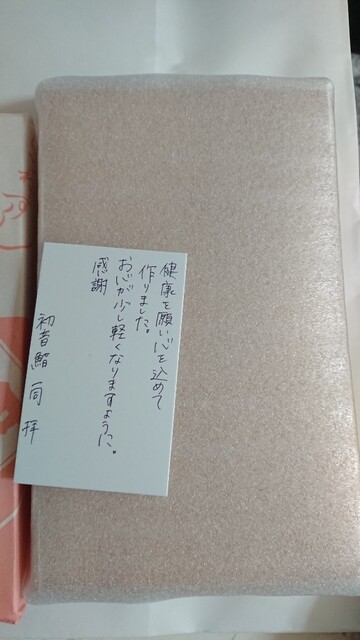 健康を願い心を込めて
作りました。
お心が少し軽くなりますように。
感謝
初音鮨 一同 拝